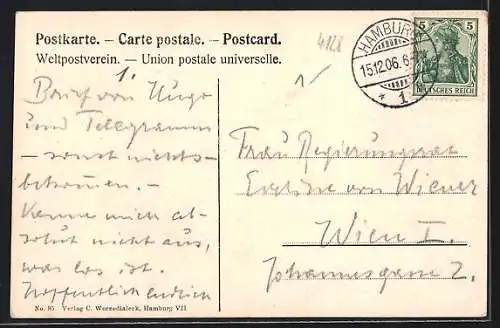 Postkarte. – Carte postale. – Postcard.
Weltpostverein. – Union postale universelle.
4128
1.
Brief von Hugo
und Telegramm
– sonst nichts
bekommen. –
Kenne mich ab-
solut nicht aus,
was los ist.
Hoffentlich endlich
No. 95 Verlag C. Worzedialeck, Hamburg VII
HAMBURG
15.12.06.6-
* 1
5 5
DEUTSCHES REICH
Frau Regierungsrat
von Wiener
Wien I.
Johannesgasse 2.